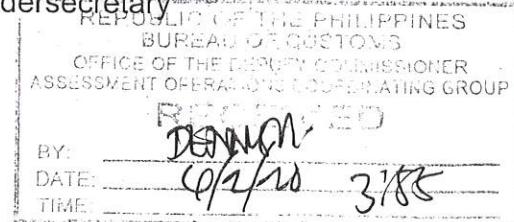 dersecretary
REPUBLIC OF THE PHILIPPINES
BUREAU OF CUSTOMS
OFFICE OF THE DEPUTY COMMISSIONER
ASSESSMENT OPERATIONS COORDINATING GROUP
RECEIVED
BY:
DATE:
TIME: